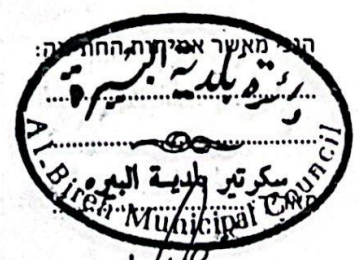 הנני מאשר אמיתות החתימה:
بلدية البيرة
سكرتير بلدية البيره
Al-Bireh Municipal Council